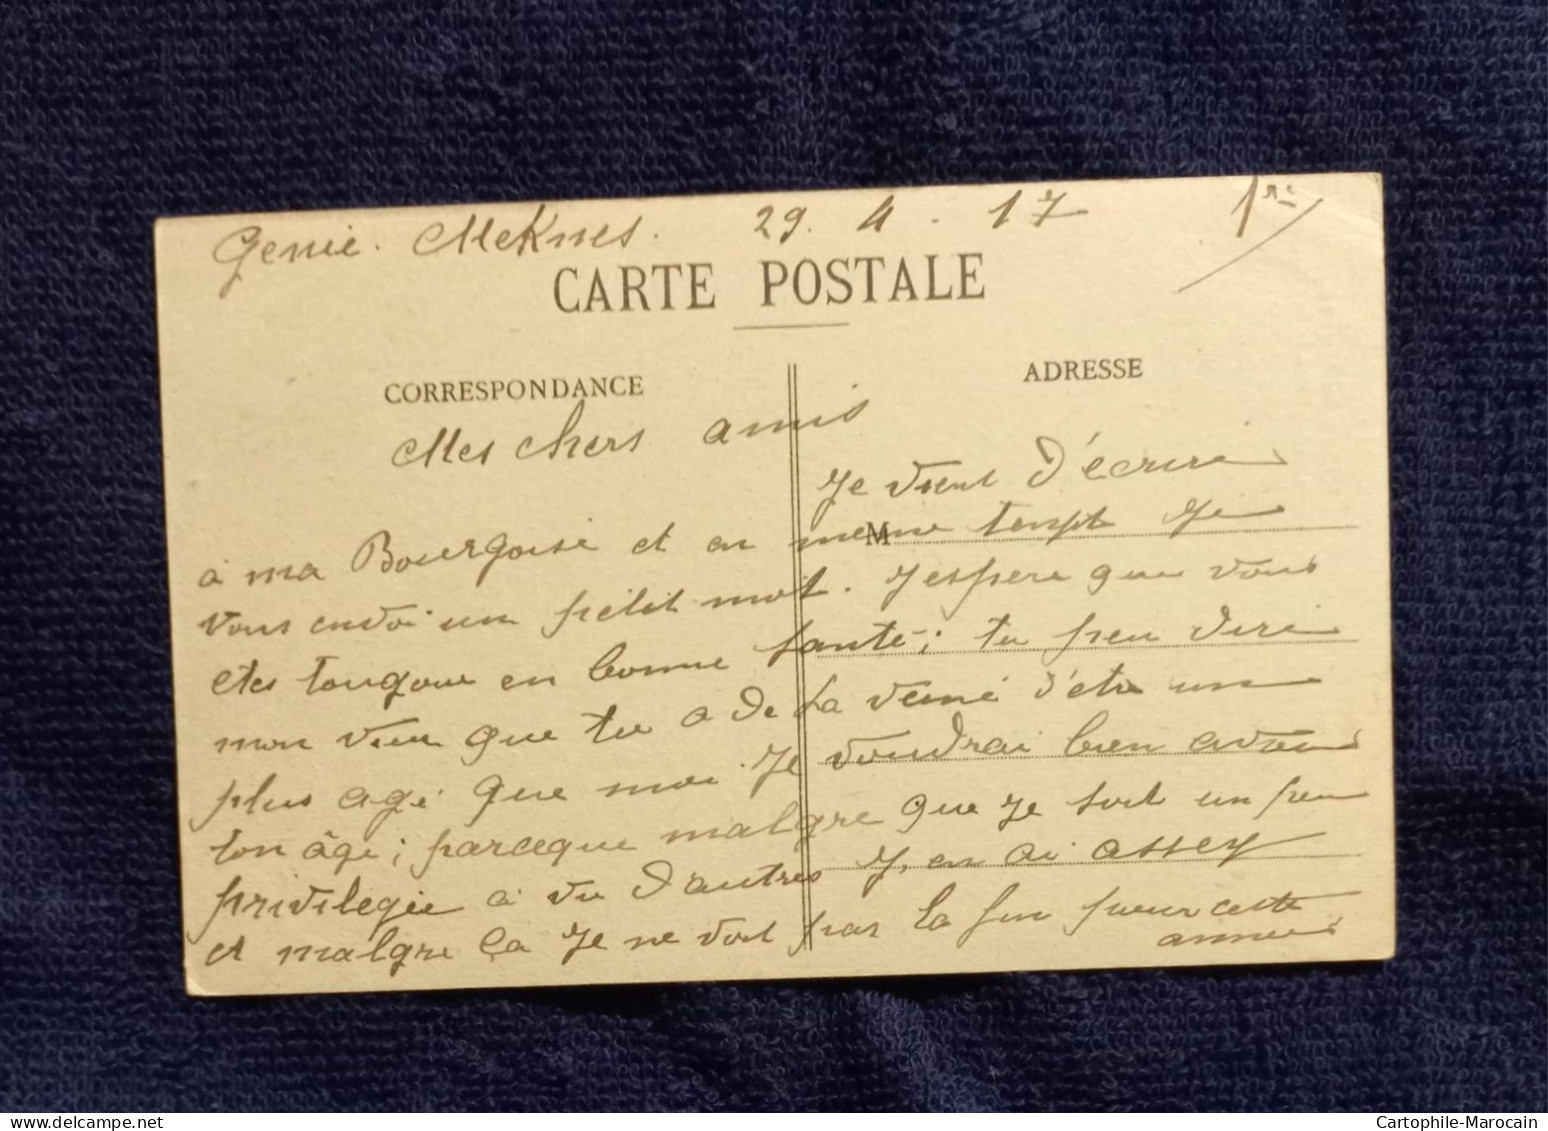 Genie. Meknes. 29. 4. 17 1re
CARTE POSTALE
CORRESPONDANCE
ADRESSE
Mes chers amis
Je vient d'écrire
M
a ma Bourgoise et en meme tempt Je
vous envoi un petit mot. J espere que vous
etes toujour en bonne santé; tu peu dire
mon vieu que tu a de la veine d'etre un
plus agé que moi Je voudrai bien avoir
ton âge; parceque malgre que Je soit un peu
privilegie a vu d'autres J, en ai assez
et malgre ça Je ne voit pas la fin pour cette
annee
Cartophile-Marocain